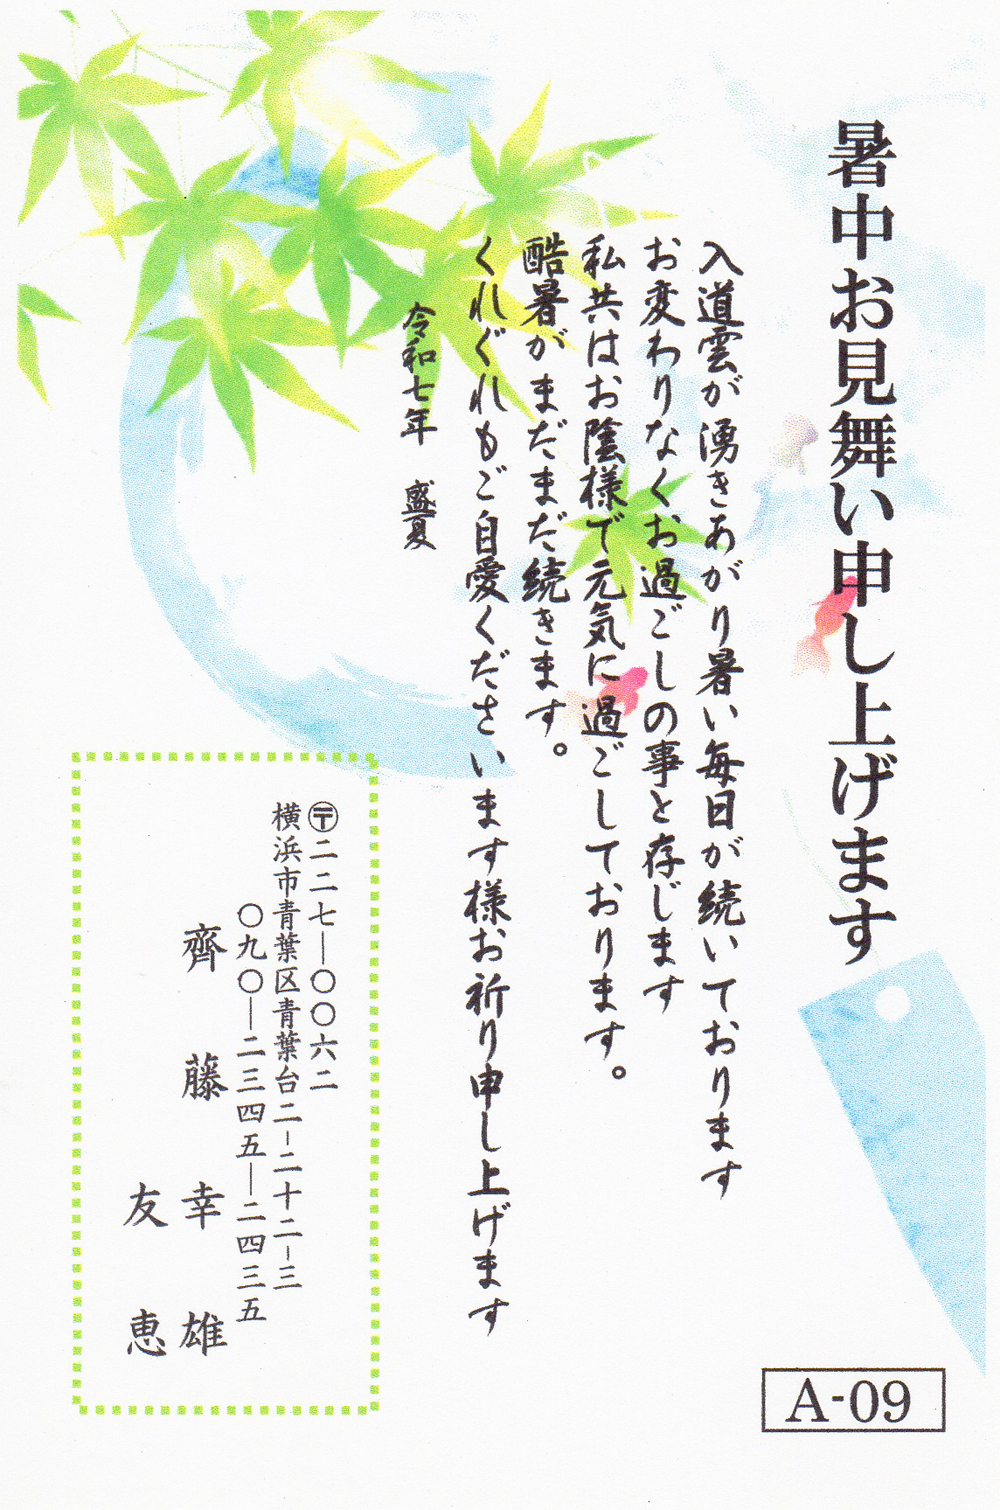 暑中お見舞い申し上げます
入道雲が湧きあがり暑い毎日が続いております
お変わりなくお過ごしの事と存じます
私共はお陰様で元気に過ごしております。
酷暑がまだまだ続きます。
くれぐれもご自愛くださいます様お祈り申し上げます
令和七年 盛夏
〒二二七―〇〇六二
横浜市青葉区青葉台二-二十二-三
〇九〇―二三四五―二四三五
齊藤 幸雄
友恵
A-09